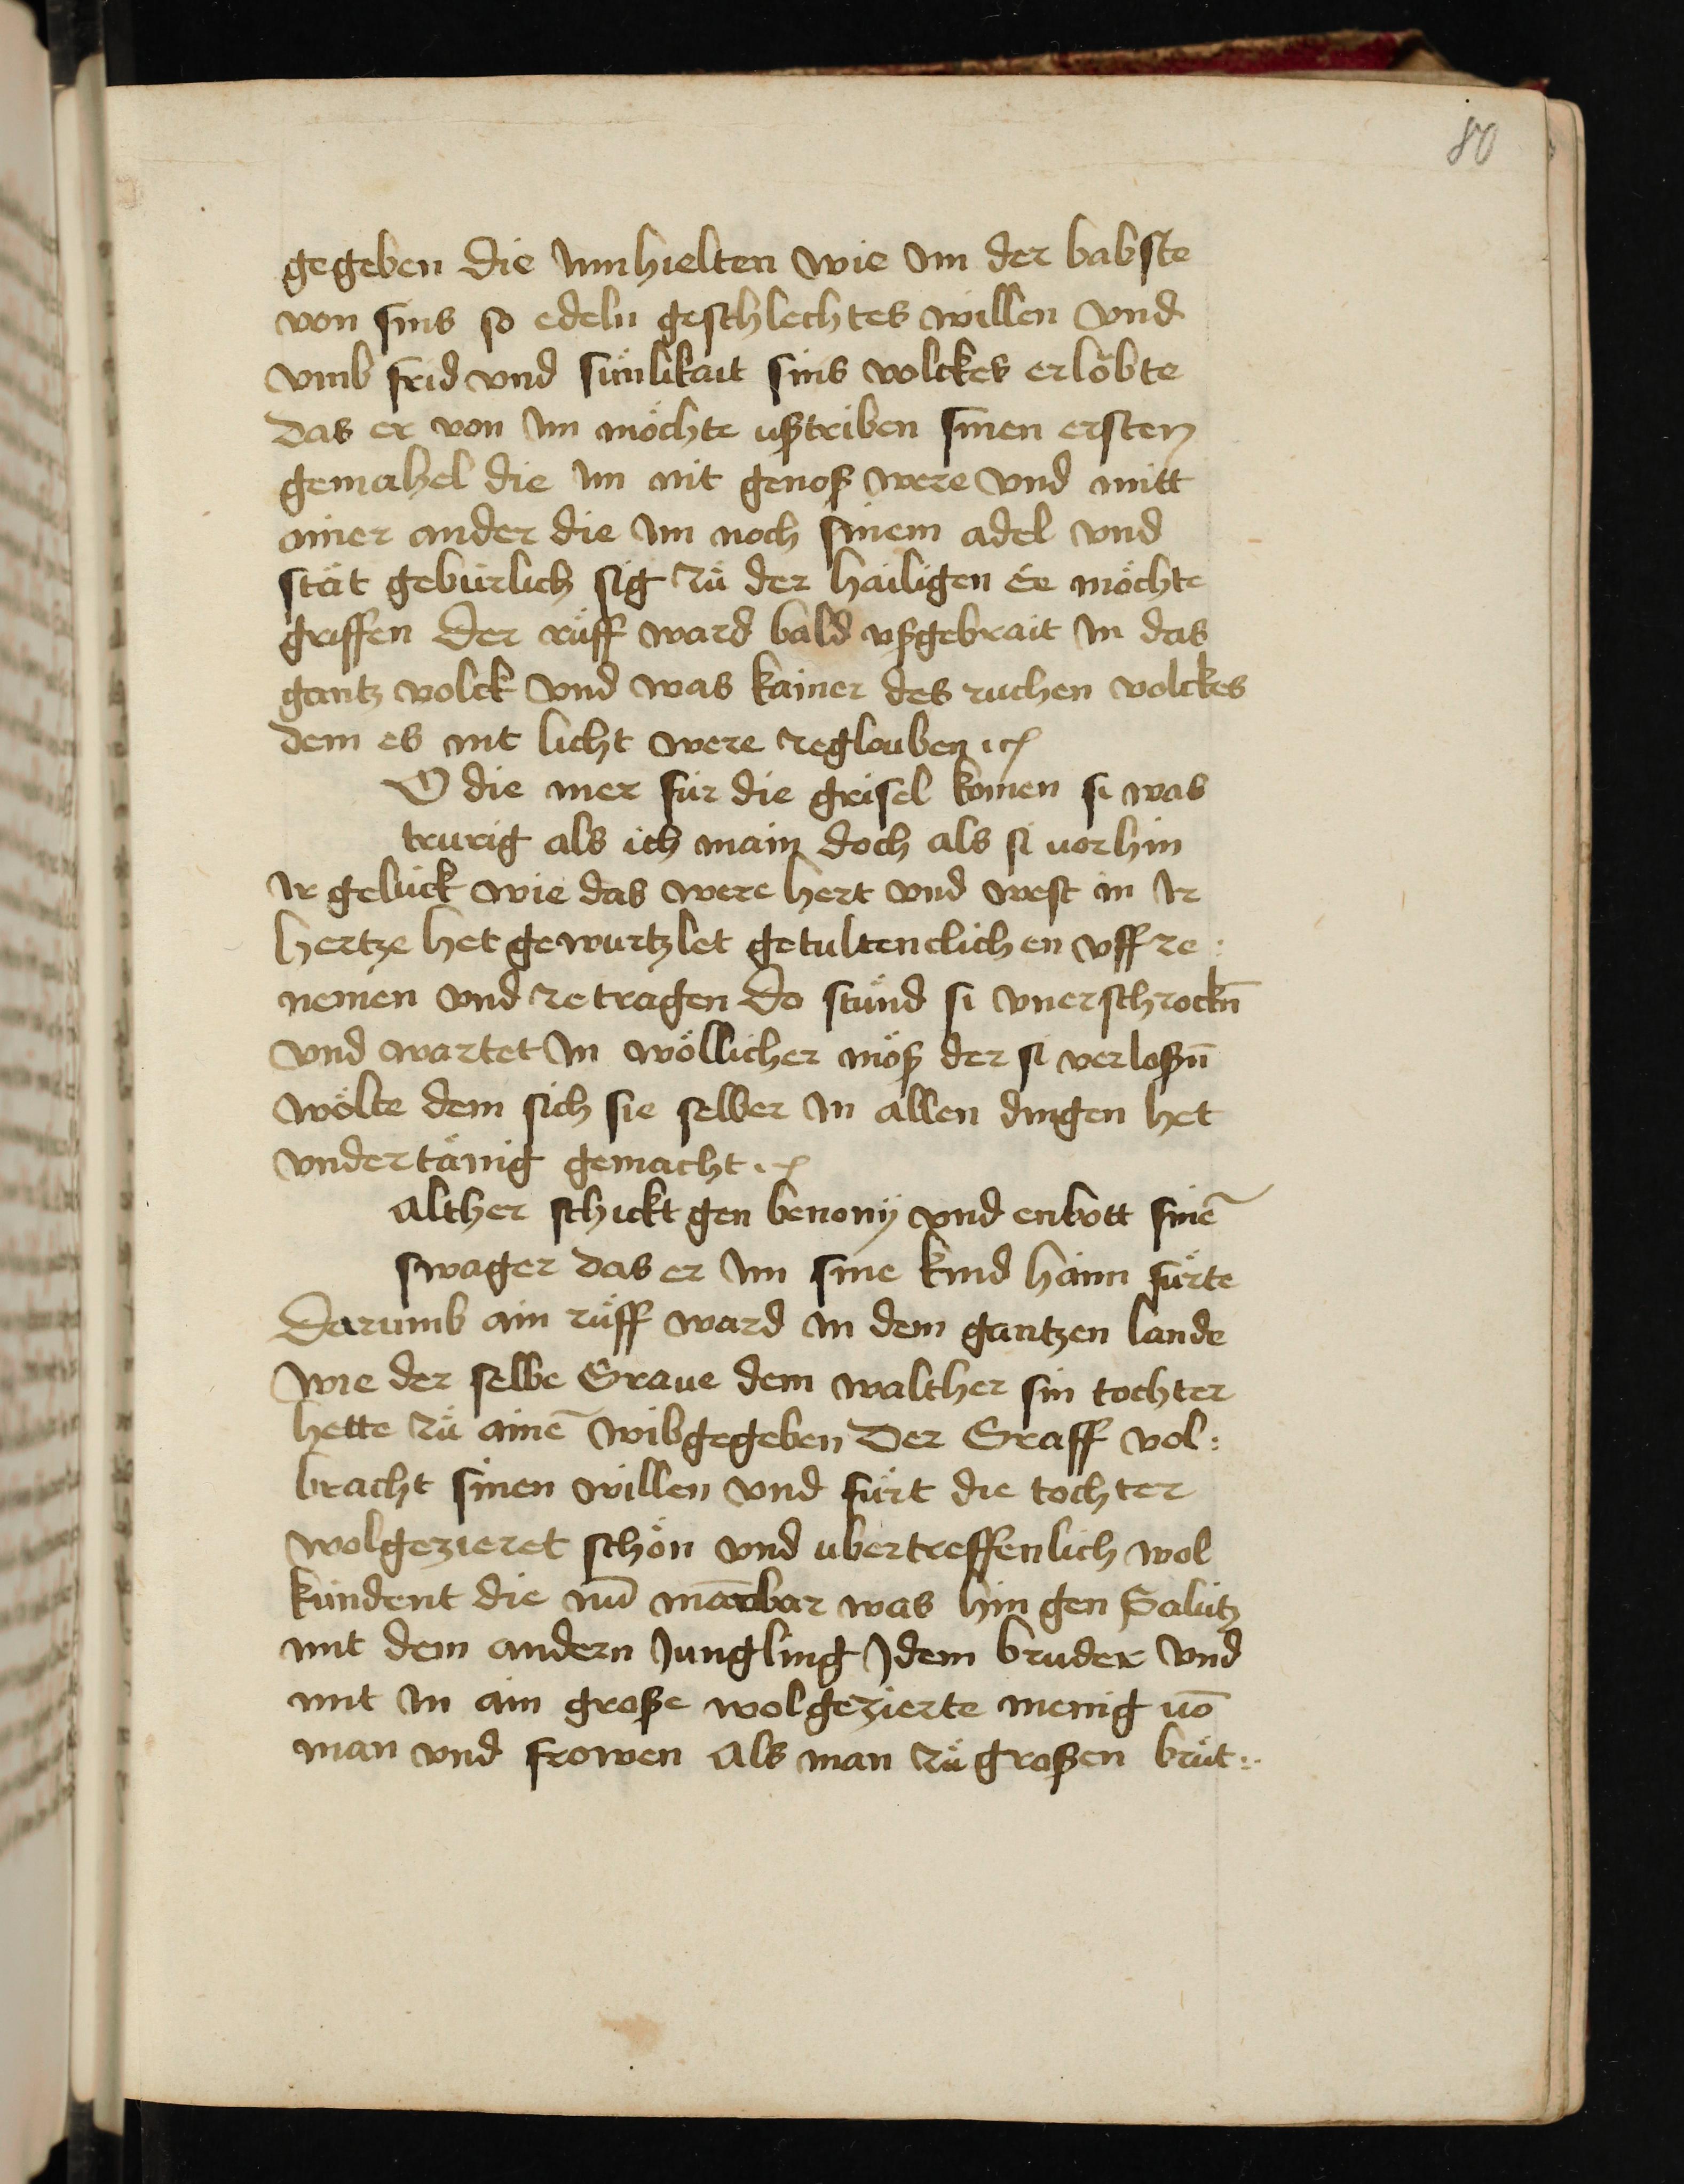 80
gegeben Die Innhielten wie Im der babste
von sins so edeln geschlechtes willen Vnd
vmb frid vnd sünlikait sins volckes erlöbte
Das er von Im möchte ußtriben sinen ersten
gemahel die Im nit genoß were Vnd mitt
ainer ander die Im noch sinem adel vnd
stät gebürlich sig zů der hailigen Ee möchte
griffen Der růff ward bald vßgebrait In das
gantz volck Vnd was kainer des ruchen volckes
dem es nit licht were zeglouben
O die mer für die grisel komen si was
trurig als ich main doch als si vorhin
Ir gelück wie das were hert vnd vest in Ir
hertze het gewurtzlet getultenclichen vff ze:
nemen vnd ze tragen Do stůnd si vnerschrockn̄
vnd wartet In wöllicher möß der si verloßn̄
wölte dem sich sie selber In allen dingen het
vndertänig gemacht
alther schickt gen benony vnd enbott sinē
swager das er Im sine kind haim fürte
Darumb ain růff ward In dem gantzen lande
wie der selbe Graue dem walther sin tochter
hette zů ainē wibgegeben Der Graff vol:
bracht sinen willen vnd fürt die tochter
wolgezieret schön vnd ubertreffenlich wol
kündent die nū mācbar was hin gen Salutz
mit dem andern Jungling Jdem bruder vnd
mit In ain große wolgezierte menig vō
man vnd frowen Als man zů großen brüt: